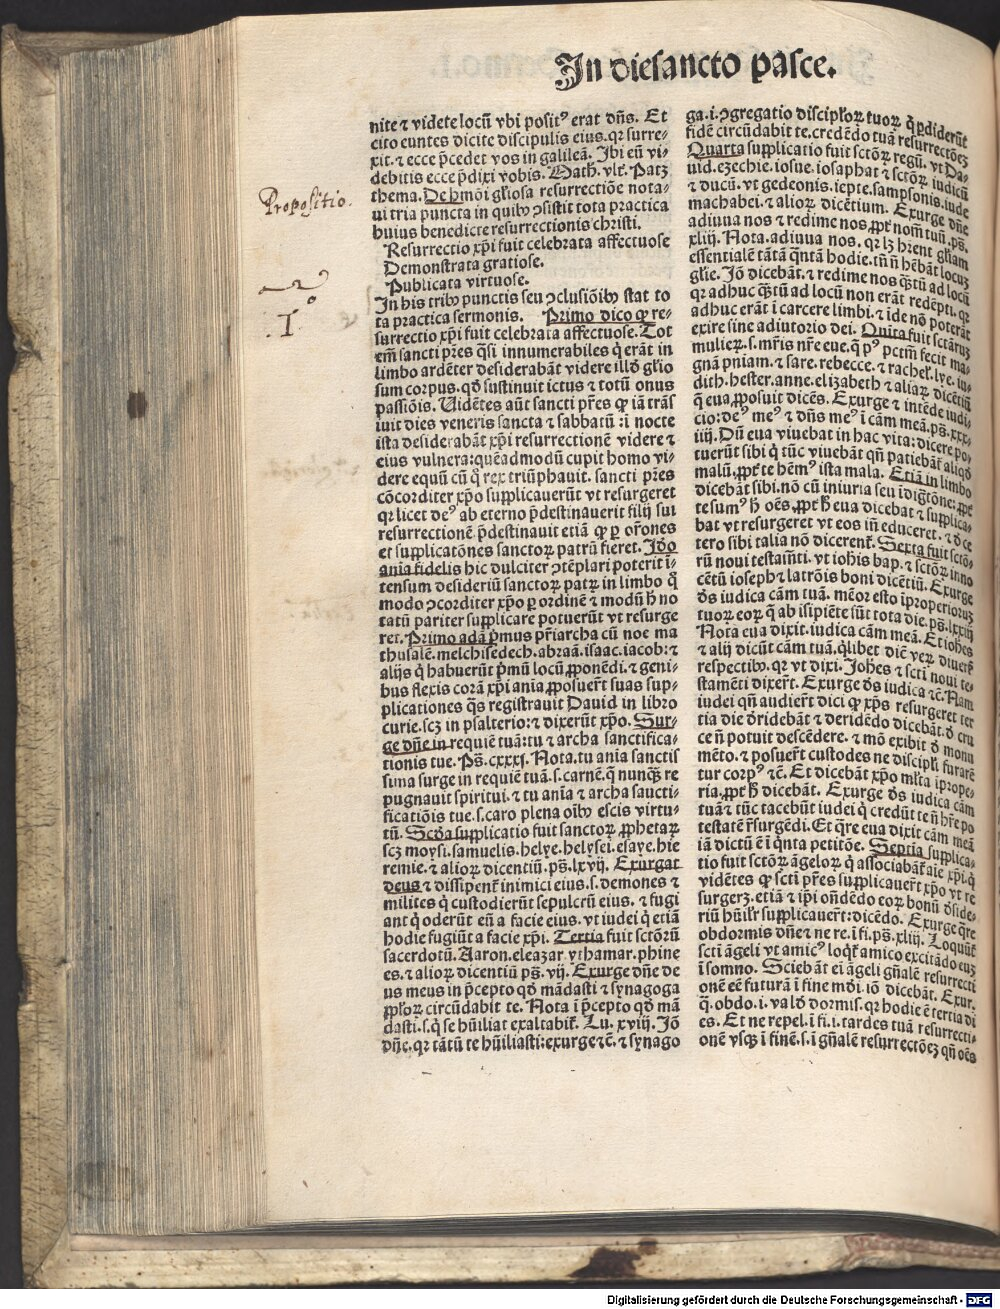 In die sancto pasce.
nite ⁊ videte locū vbi positꝰ erat dn̄s. Et
cito euntes dicite discipulis eius. qr surre-
xit. ⁊ ecce p̄cedet vos in galileā. Ibi eū vi-
debitis ecce p̄dixi vobis. Math. vlt̄. Patꝫ
thema. De hm̄oi gl̄iosa resurrectiōe nota-
Propositio.
ui tria puncta in quibꝯ ꝯsistit tota practica
huius benedicte resurrectionis christi.
Resurrectio xp̄i fuit celebrata affectuose
Demonstrata gratiose.
Publicata virtuose.
In his tribꝯ punctis seu ꝯclusiōibꝯ stat to
ta practica sermonis. Primo dico ꝙ re-
I
surrectio xp̄i fuit celebrata affectuose. Tot
em̄ sancti pr̄es q̄si innumerabiles q̄ erāt in
limbo ardēter desiderabāt videre illd̄ gl̄io
sum corpus. qd̄ sustinuit ictus ⁊ totū onus
passiōis. Uidētes aūt sancti pr̄es ꝙ iā trās
iuit dies veneris sancta ⁊ sabbatū: i nocte
ista desiderabāt xp̄i resurrectionē videre ⁊
eius vulnera: quēadmodū cupit homo vi-
dere equū cū q̄ rex triūphauit. sancti pr̄es
cōcorditer xp̄o supplicauerūt vt resurgeret
qr licet deꝰ ab eterno p̄destinauerit filij sui
resurrectionē p̄destinauit etiā ꝙ ꝑ or̄ones
et supplicatōnes sanctoꝝ patrū fieret. Id̄o
ania fidelis hic dulciter ꝯtēplari poterit ī-
tensum desideriū sanctoꝝ patꝝ in limbo q̄
modo ꝯcorditer xp̄o ꝑ ordinē ⁊ modū h̄ no
tatū pariter supplicare potuerūt vt resurge
ret. Primo adā p̄mus pr̄iarcha cū noe ma
thusalē. melchisedech. abraā. isaac. iacob: ⁊
alijs q̄ habuerūt p̄mū locū ꝓponēdi. ⁊ geni-
bus flexis corā xp̄i ania ꝓposuer̄t suas sup-
plicationes q̄s registrauit Dauid in libro
curie. scꝫ in psalterio: ⁊ dixerūt xp̄o. Sur-
ge dn̄e in requiē tuā: tu ⁊ archa sanctifica-
tionis tue. Ps̄. cxxxj. Nota. tu ania sanctis
sima surge in requiē tuā. s. carnē. q̄ nunqꝫ re
pugnauit spiritui. ⁊ tu ania ⁊ archa sancti-
ficatiōis tue. s. caro plena oībꝯ escis virtu-
tū. Scd̄a supplicatio fuit sanctoꝝ ꝓphetaꝝ
scꝫ moysi. samuelis. helye. helysei. esaye. hie
remie. ⁊ alioꝝ dicentiū. ps̄. lxvij. Exurgat
deus ⁊ dissipent̄ inimici eius. s. demones ⁊
milites q̄ custodierūt sepulcrū eius. ⁊ fugi
ant q̄ oderūt eū a facie eius. vt iudei q̄ etiā
hodie fugiūt a facie xp̄i. Tertia fuit sctōrū
sacerdotū. Aaron. eleazar ythamar. phine
es. ⁊ alioꝝ dicentiū ps̄. vij. Exurge dn̄e de
us meus in p̄cepto qd̄ mādasti ⁊ synagoga
ppl̄oꝝ circūdabit te. Nota ī p̄cepto qd̄ mā
dasti. s. q̄ se hūiliat exaltabit̄. Lu. xviij. Iō
dn̄e. qr tātū te hūiliasti: exurge ⁊c̄. ⁊ synago
ga. i. ꝯgregatio discipl̄oꝝ tuoꝝ q̄ ꝑdiderūt
fidē circūdabit te. credēdo tuā resurrectōeꝫ
Quarta supplicatio fuit sctōꝝ regū. vt Da-
uid. ezechie. iosue. iosaphat ⁊ sctōꝝ iudicū
⁊ ducū. vt gedeonis. iepte. sampsonis. iude
machabei. ⁊ alioꝝ dicētium. Exurge dn̄e
adiuua nos ⁊ redime nos ꝓpt̄ nom̄ tuū. ps̄.
xliij. Nota. adiuua nos. qr lꝫ hr̄ent gl̄iam
essentialē tātā q̄ntā hodie. tn̄ n̄ hēbāt locuꝫ
gl̄ie. Iō dicebāt. ⁊ redime nos q̄stū ad locū
qr adhuc q̄stū ad locū non erāt redēpti. qr
adhuc erāt ī carcere limbi. ⁊ ide nō poterāt
exire sine adiutorio dei. Quita fuit sctāꝝ
mulieꝝ. s. mr̄is nr̄e eue. q̄ pꝰ pctm̄ fecit ma-
gnā pniam. ⁊ sare. rebecce. ⁊ rachel̄. lye. iu-
dith. hester. anne. elizabeth ⁊ aliaꝝ dicētiū
q̄ eua ꝓposuit dicēs. Exurge ⁊ intēde iudi-
cio: deꝰ meꝰ ⁊ dn̄s meꝰ ī cām meā. ps̄. xxx-
iiij. Dū eua viuebat in hac vita: dicere po-
tuerūt sibi q̄ tūc viuebāt qn̄ patiebāt̄ aliqd̄
malū. ꝓpt̄ te hēmꝰ ista mala. Etiā in limbo
dicebāt sibi. nō cū iniuria seu īdigtōne: ꝓpt̄
te sumꝰ h̄ oēs. ꝓpt̄ h̄ eua dicebat ⁊ supplica-
bat vt resurgeret vt eos iñ educeret. ⁊ d̄ ce
tero sibi talia nō dicerent̄. Sexta fuit sctō-
rū noui testam̄ti. vt ioh̄is bap. ⁊ sctōꝝ inno
cētū ioseph ⁊ latrōis boni dicētiū. Exurge
d̄s iudica cām tuā. mēor esto īproperioruꝫ
tuoꝝ eoꝝ q̄ ab īsipiēte sūt tota die. ps̄. lxxiij
Nota eua dixit. iudica cām meā. Et ioh̄es
⁊ alij dicūt cām tuā. q̄libet diē veꝝ diuers̄
respectibꝯ. qr vt dixi. Ioh̄es ⁊ scti noui te-
stamēti dixer̄t. Exurge d̄s iudica ⁊c̄. Nam
iudei qn̄ audier̄t dici ꝙ xp̄s resurgeret ter
tia die d̄ridebāt ⁊ deridēdo dicebāt. d̄ cru
ce n̄ potuit descēdere. ⁊ mō exibit d̄ monu
mēto. ⁊ posuer̄t custodes ne discipl̄i furarē
tur corpꝰ ⁊c̄. Et dicebāt xp̄o ml̄ta īprope-
ria. ꝓpt̄ h̄ dicebāt. Exurge d̄s iudica cām
tuā ⁊ tūc tacebūt iudei q̄ credūt te n̄ hr̄e po
testatē r̄surgēdi. Et q̄re eua dixit cām meā
iā dictū ē ī q̄nta petitōe. Septīa supplica-
tio fuit sctōꝝ āgeloꝝ q̄ associabāt̄ aīe xp̄i. q̄
vidētes ꝙ scti pr̄es supplicauer̄t xp̄o vt re
surgeꝫ. etiā ⁊ ip̄i ōn̄dēdo eoꝝ bonū d̄side-
riū hūil̄r supplicauer̄t: dicēdo. Exurge q̄re
obdormis dn̄e ⁊ ne re. ī fi. ps̄. xliij. Loquūt̄
sctī āgeli vt amicꝰ loqt̄ amico excitādo euꝫ
ī somno. Sciebāt ei āgeli gn̄alē resurrecti
onē eē futurā ī fine mdi. iō dicebāt. Exur.
q̄. obdo. i. valꝺ dormis. qr hodie ē tertia di
es. Et ne repel. ī fi. i. tardes tuā resurrecti-
onē vsqꝫ ī finē. s. ī gn̄alē resurrectōeꝫ qn̄ oēs
Digitalisierung gefördert durch die Deutsche Forschungsgemeinschaft - DFG